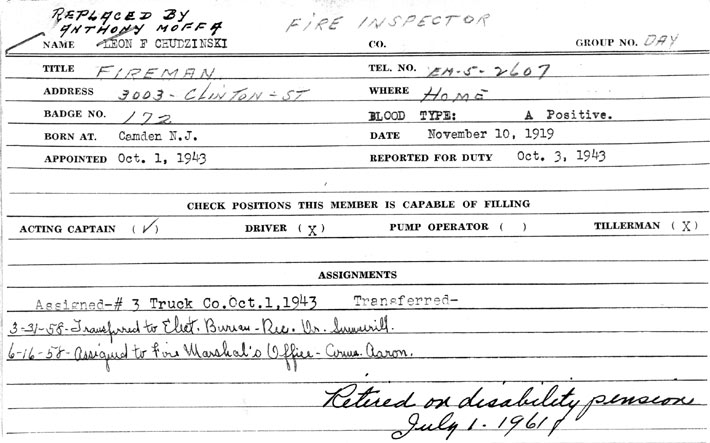 REPLACED BY
ANTHONY MOFFA
FIRE INSPECTOR
NAME LEON F CHUDZINSKI CO. GROUP NO. DAY
TITLE FIREMAN TEL. NO. EM-5-2607
ADDRESS 3003-CLINTON-ST WHERE HOME
BADGE NO. 172 BLOOD TYPE: A Positive.
BORN AT. Camden N.J. DATE November 10, 1919
APPOINTED Oct. 1, 1943 REPORTED FOR DUTY Oct. 3, 1943
CHECK POSITIONS THIS MEMBER IS CAPABLE OF FILLING
ACTING CAPTAIN (✓) DRIVER (X) PUMP OPERATOR ( ) TILLERMAN (X)
ASSIGNMENTS
Assigned-# 3 Truck Co.Oct.1,1943 Transferred-
3-31-58-Transferred to Elect. Bureau-
6-16-58-Assigned to Fire Marshal's Office- Aaron.
Retired on disability pension
July 1. 1961